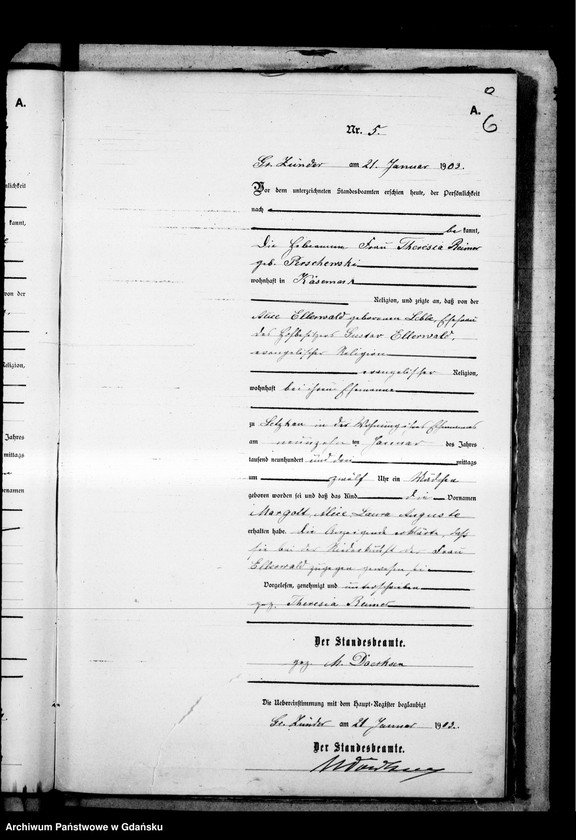 A.
A.
6
Nr. 5.
Gr. Zünder am 21. Januar 1903.
Vor dem unterzeichneten Standesbeamten erschien heute, der Persönlichkeit
nach
be kannt,
die Hebamme Frau Theresia Reimer
geb. Perschewski
wohnhaft in Käsemark
Religion, und zeigte an, daß von der
Alice Ellerwald geborenen Ehefrau
des Hofbesitzers Gustav Ellerwald,
evangelischer Religion
evangelischer Religion,
wohnhaft bei ihrem Ehemanne
zu Letzkau in der Wohnung ihres Ehemannes
am neunzehn ten Januar des Jahres
tausend neunhundert und drei mittags
um zwölf Uhr ein Mädchen
geboren worden sei und daß das Kind die Vornamen
Margott Alice Laura Auguste
erhalten habe. Die Anzeigende erklärte, daß
sie bei der Niederkunft der Frau
Ellerwald zugegen gewesen sei
Vorgelesen, genehmigt und unterschrieben
gez. Theresia Reimer
Der Standesbeamte.
gez. M.
Die Uebereinstimmung mit dem Haupt-Register beglaubigt
Gr. Zünder am 21 Januar 1903.
Der Standesbeamte.
nlichkeit
kannt,
von der
Religion,
Jahres
mittags
ornamen
Archiwum Państwowe w Gdańsku